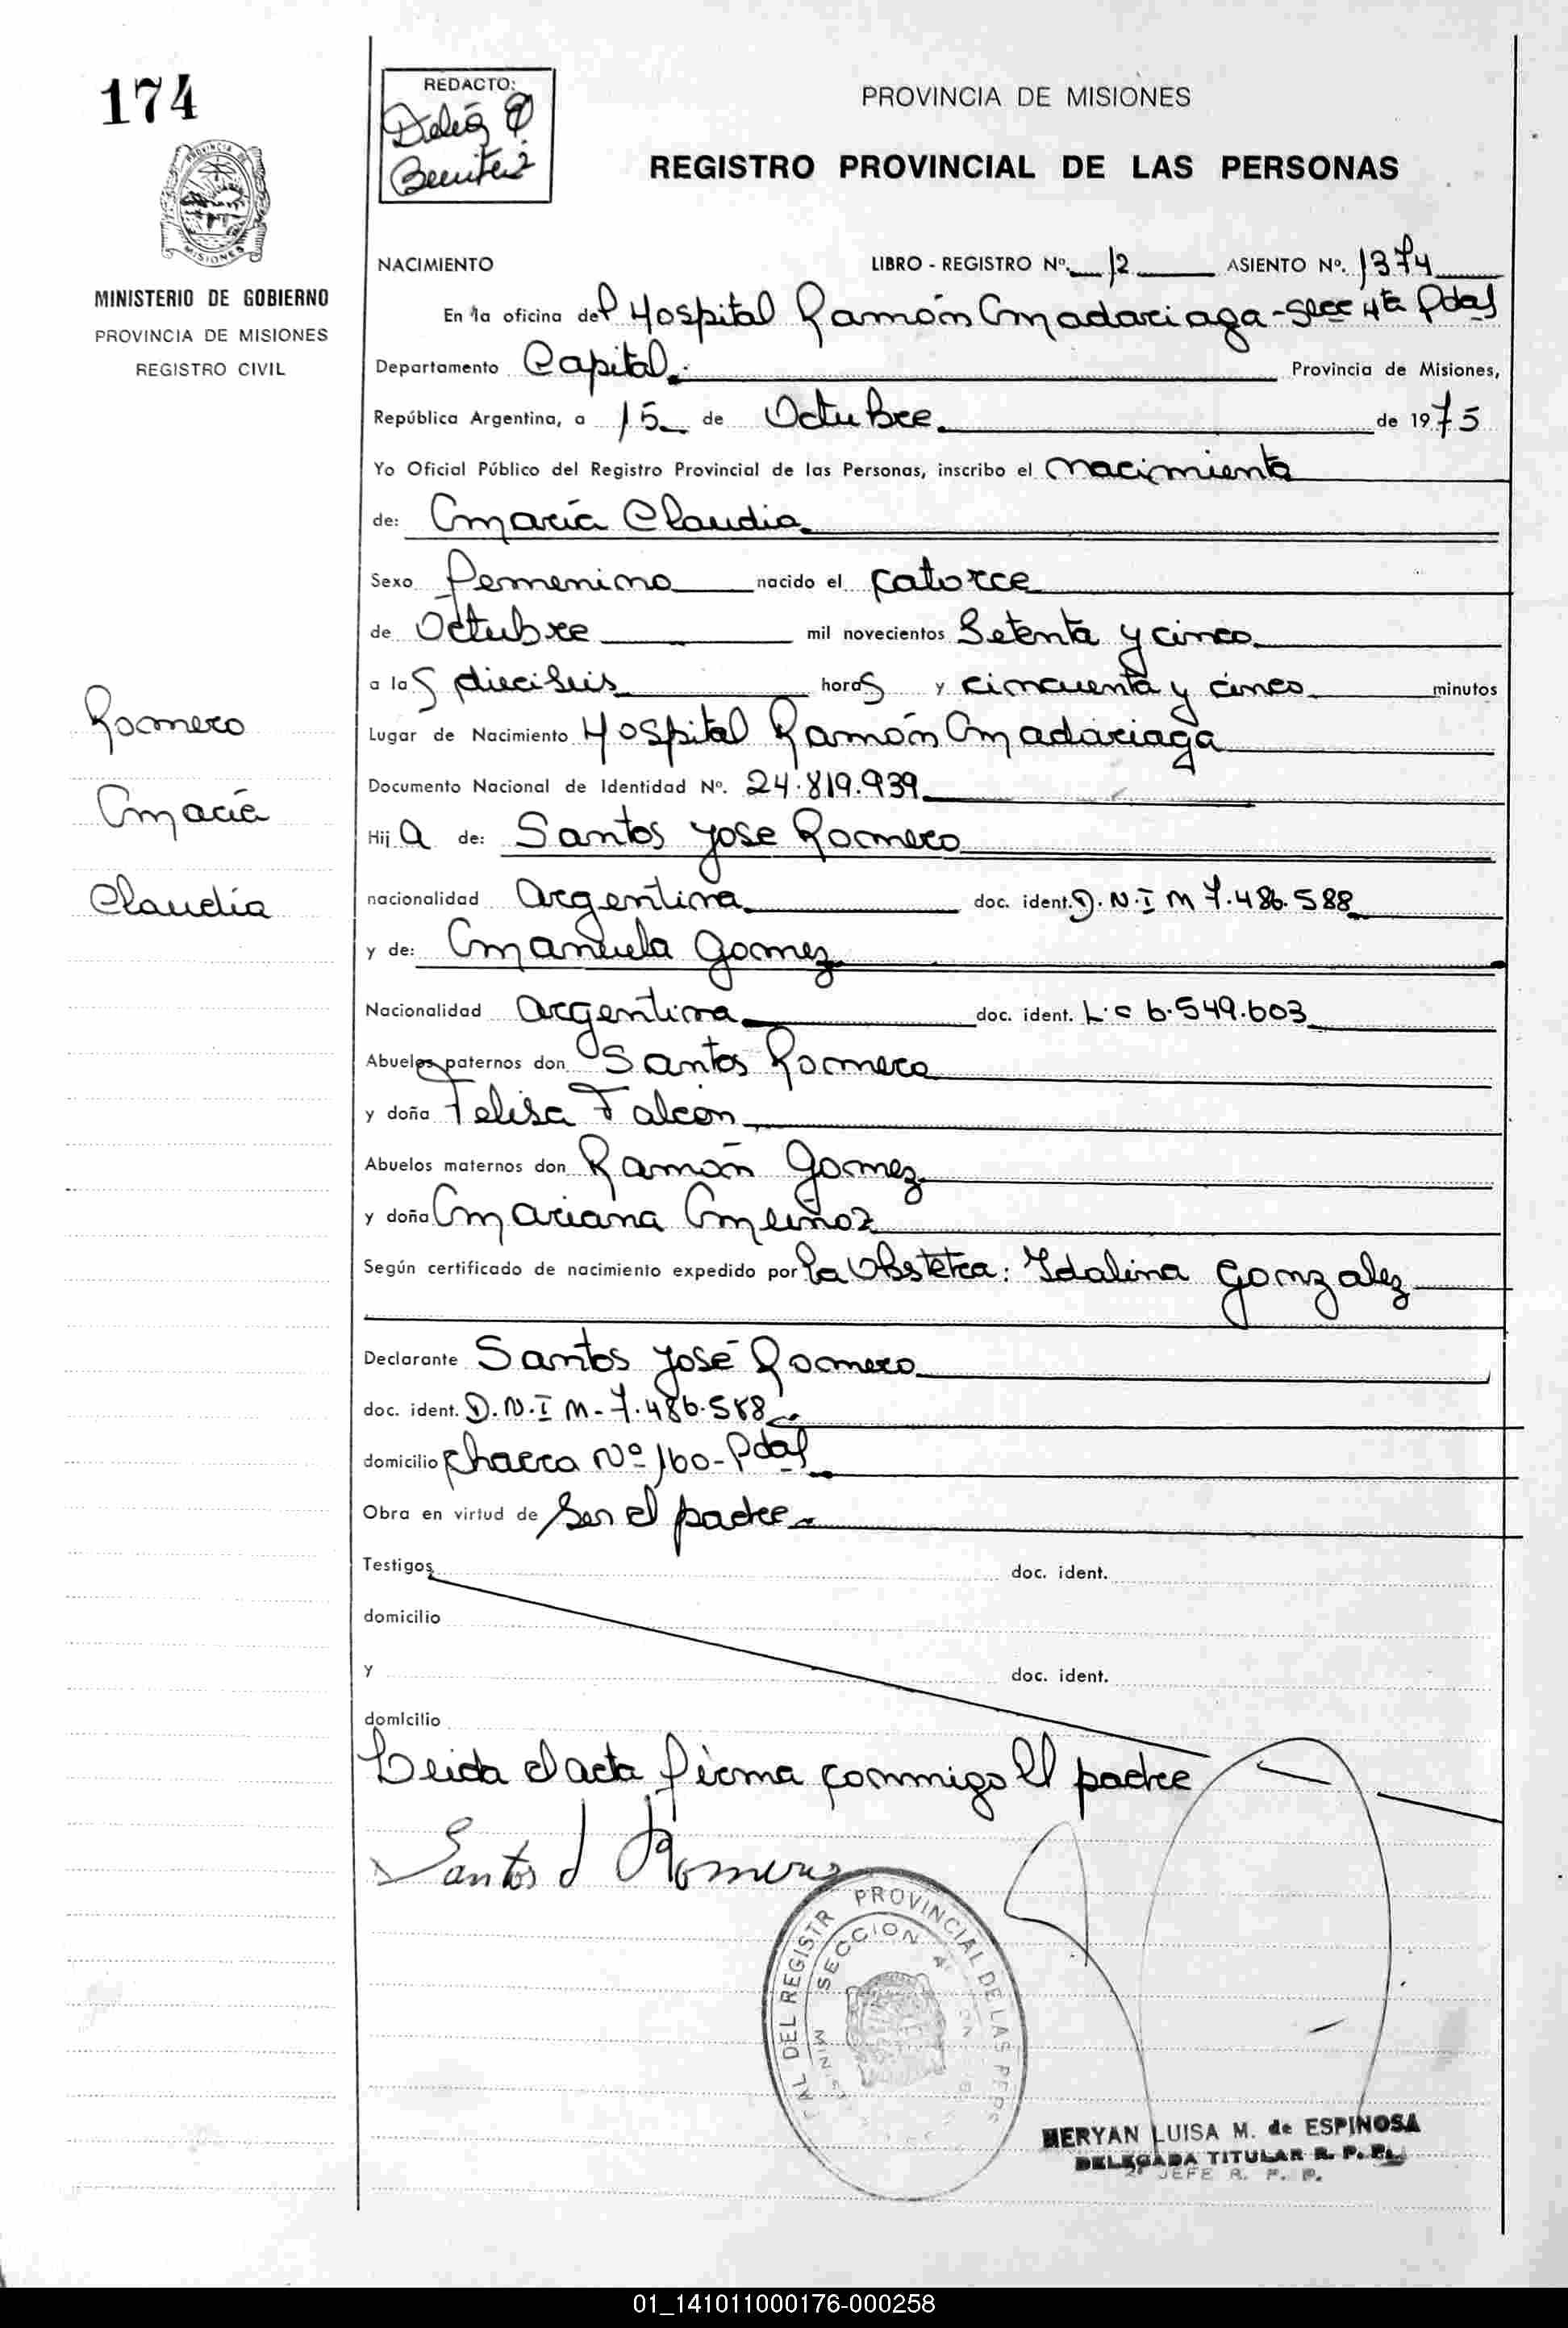 174
REDACTO:
Delia
Benitez
PROVINCIA DE MISIONES
REGISTRO PROVINCIAL DE LAS PERSONAS
PROVINCIA DE
MISIONES
MINISTERIO DE GOBIERNO
PROVINCIA DE MISIONES
REGISTRO CIVIL
NACIMIENTO LIBRO - REGISTRO Nº. 12 ASIENTO Nº. 1374
En la oficina del Hospital Ramón Madariaga - Secc 4ta Pdas
Departamento Capital. Provincia de Misiones,
República Argentina, a 15 de Octubre. de 1975
Yo Oficial Público del Registro Provincial de las Personas, inscribo el nacimiento
de: María Claudia
Sexo femenino nacido el catorce
de Octubre mil novecientos Setenta y cinco
a las dieciseis horas y cincuenta y cinco minutos
Lugar de Nacimiento Hospital Ramón Madariaga
Documento Nacional de Identidad Nº. 24.819.939
Hija de: Santos Jose Romero
nacionalidad Argentina doc. ident. D.N.I M 7.486.588
y de: Manuela Gomez
Nacionalidad Argentina doc. ident. L.C 6.549.603
Abuelos paternos don Santos Romero
y doña Felisa Falcon
Abuelos maternos don Ramón Gomez
y doña Mariana Muñoz
Según certificado de nacimiento expedido por la Obstetra: Idalina Gonzalez
Declarante Santos José Romero
doc. ident. D.N.I M-7.486.588
domicilio Chacra Nº 160-Pdas
Obra en virtud de Ser el padre
Testigos doc. ident.
domicilio
y doc. ident.
domicilio
Leida el acta firma conmigo El padre
Santos J Romero
Romero
María
Claudia
DEL REGISTR PROVINCIAL DE LAS PERS
SECCION 4
MERYAN LUISA M. de ESPINOSA
DELEGADA TITULAR R. P. P.
2º JEFE R. P. P.
01_141011000176-000258